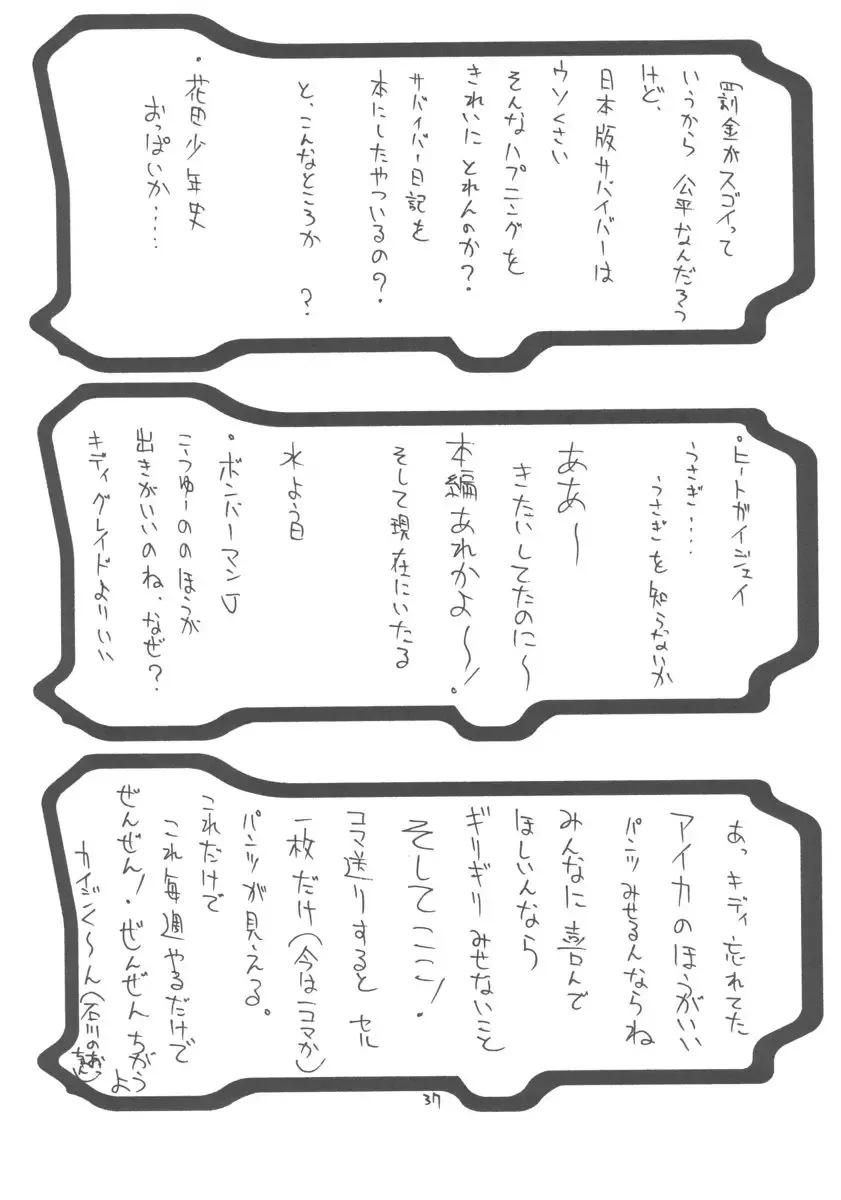 罰金がスゴイって
いうから 公平なんだろう
けど、
日本版サバイバーは
ウソくさい
そんなハプニングを
きれいに とれんのか?
サバイバー日記を
本にしたやついるの?
と、こんなところか ?
・花田少年史
おっぱいか……
・ヒートガイジェイ
うさぎ…
うさぎを知らないか
ああ〜
きたいしてたのに〜
本編あれかよ〜!
そして現在にいたる
水よう日
・ボンバーマンJ
こうゆーののほうが
出きがいいのね、なぜ?
キディグレイドよりいい
あっ キディ忘れてた
アイカのほうがいい
パンツみせるんならね
みんなに喜んで
ほしいんなら
ギリギリ みせないこと
そしてここ!
コマ送りすると セル
一枚だけ(今は一コマか)
パンツが見える。
これだけで
これ毎週やるだけで
ぜんぜん!・ぜんぜん ちがうよ
カイジンく〜ん(石川のおっ
37